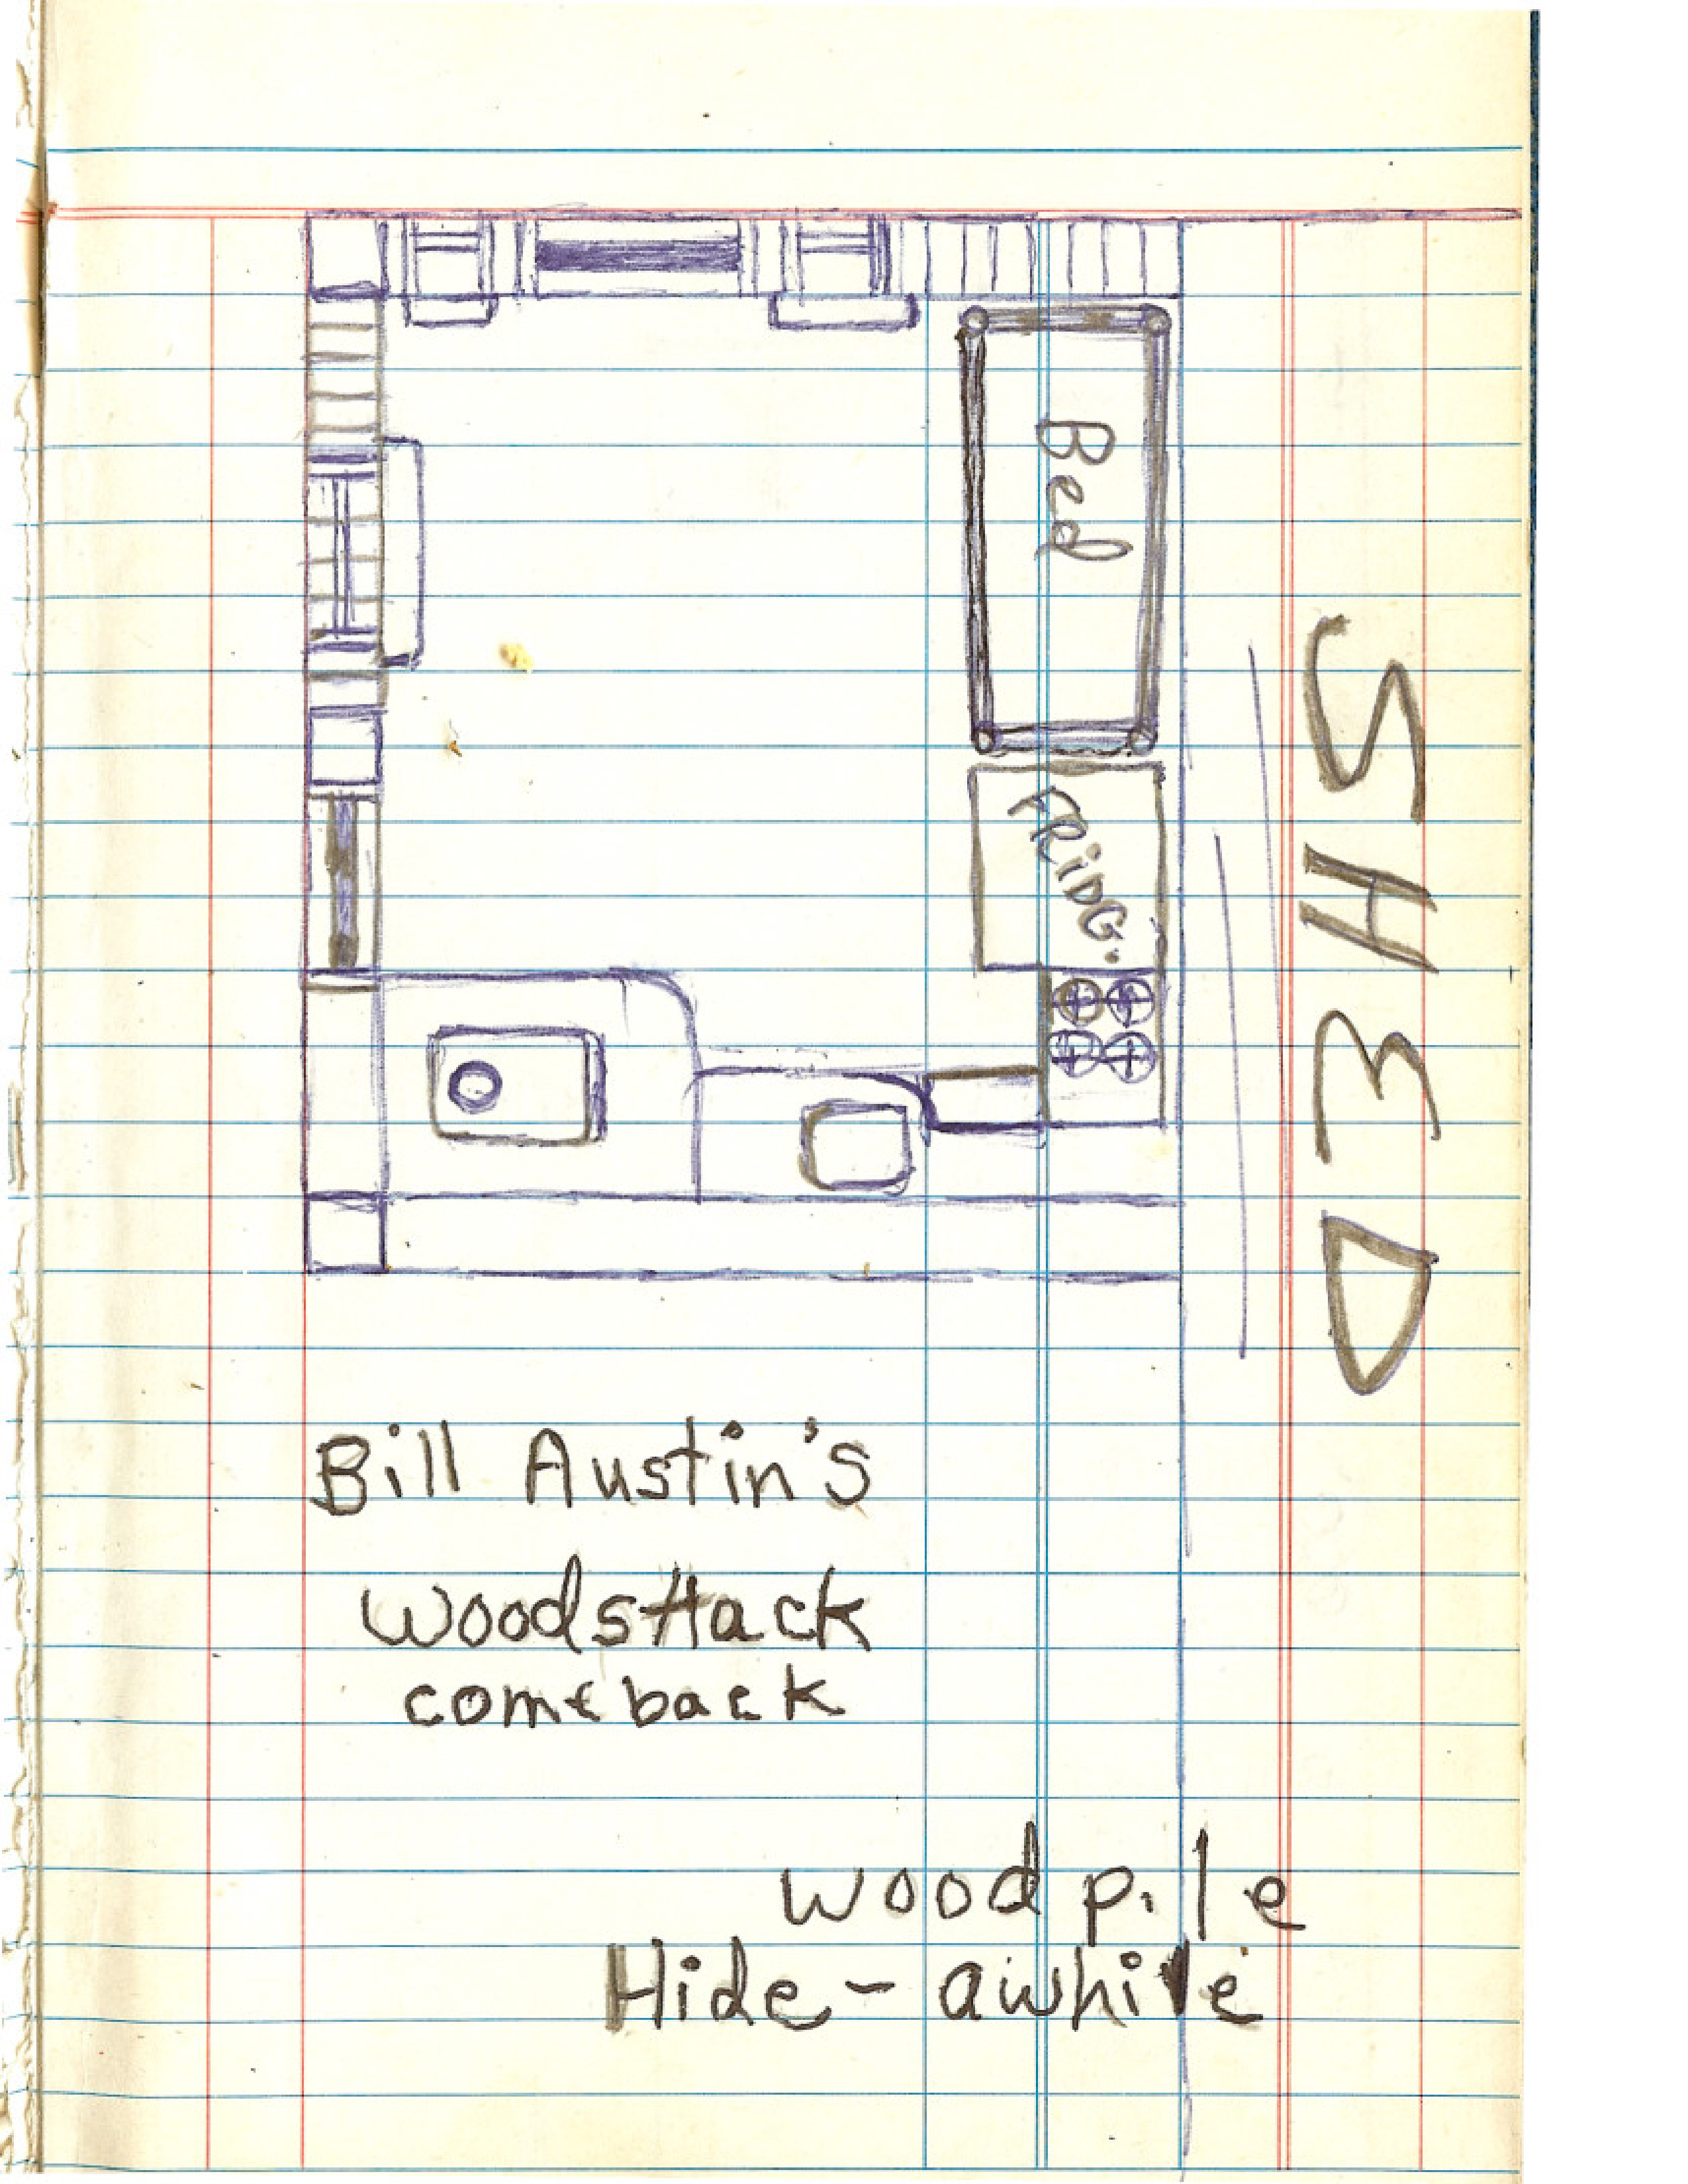 Bed
FRiDG.
SHED
Bill Austin's
WoodsHack
comeback
woodpile
Hide - awhile